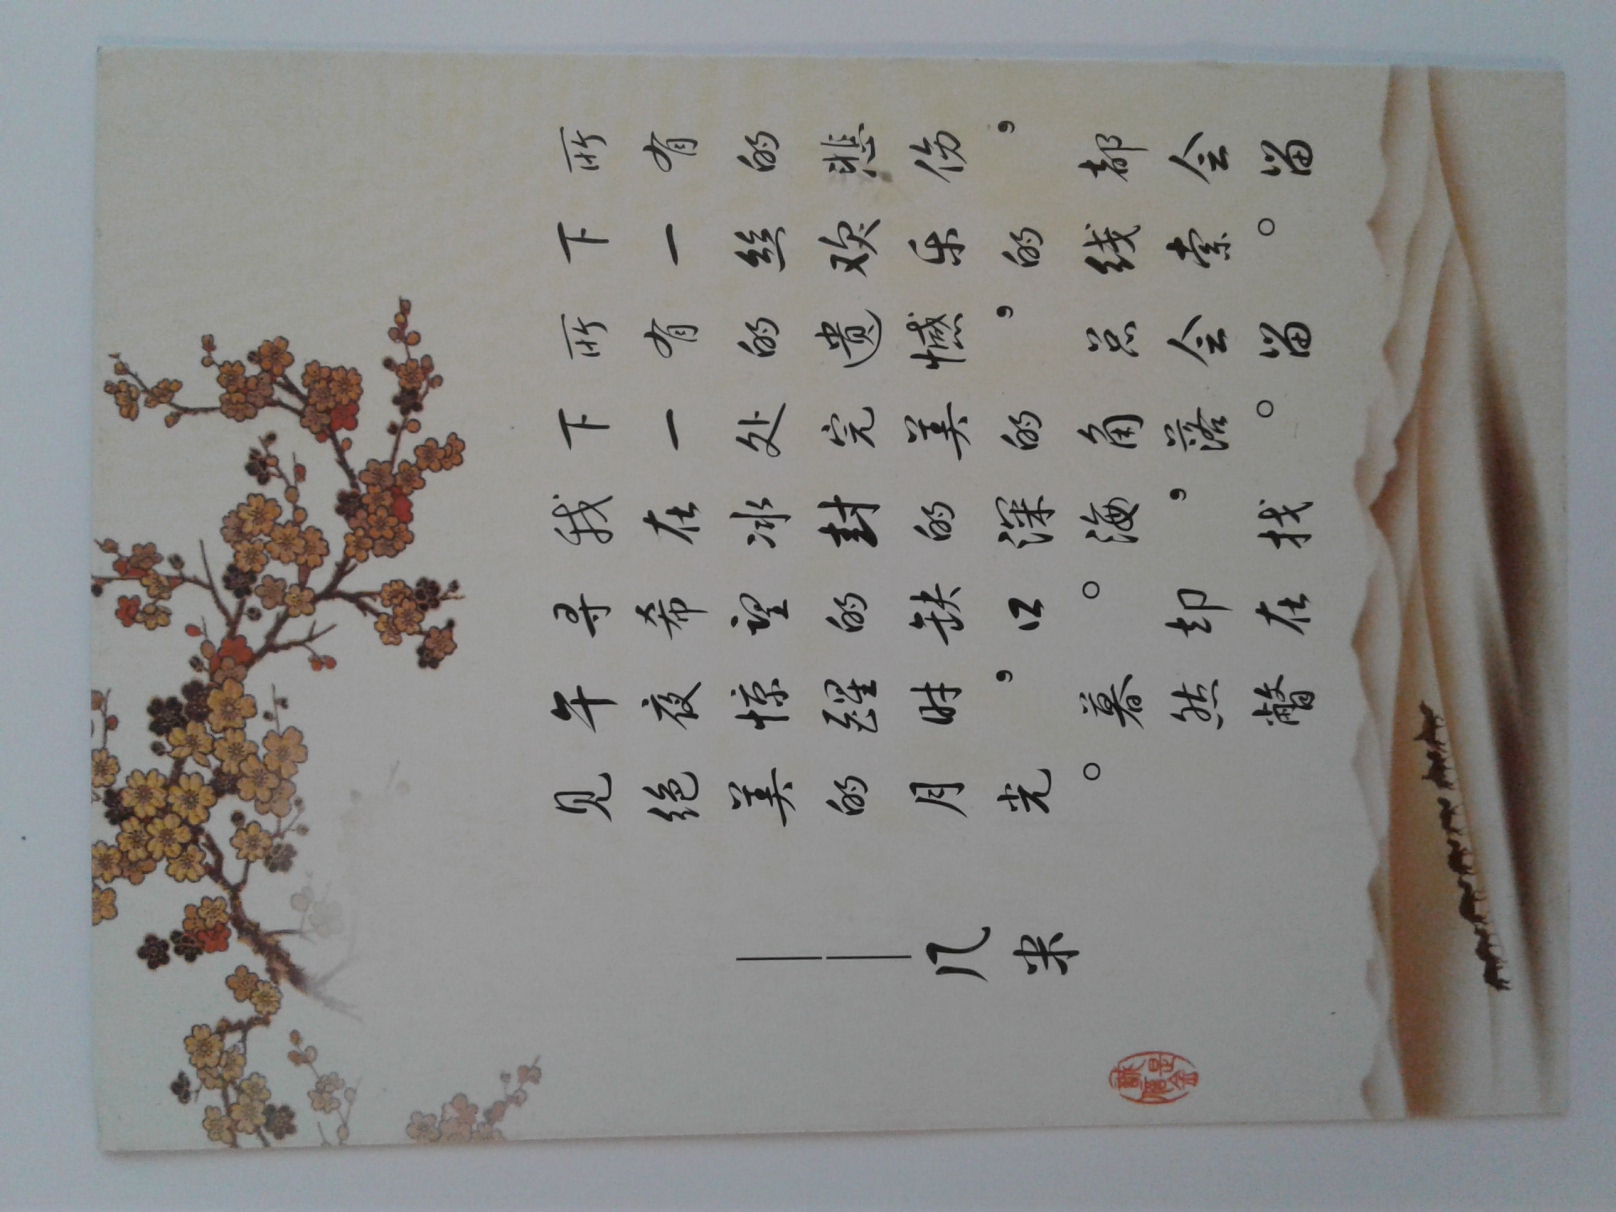 所有的悲伤，都会留
下一丝欢乐的线索。
所有的遗憾，总会留
下一处完美的角落。
我在冰封的深海，找
寻希望的缺口。却在
午夜惊醒时，暮然瞥
见绝美的月光。
——几米